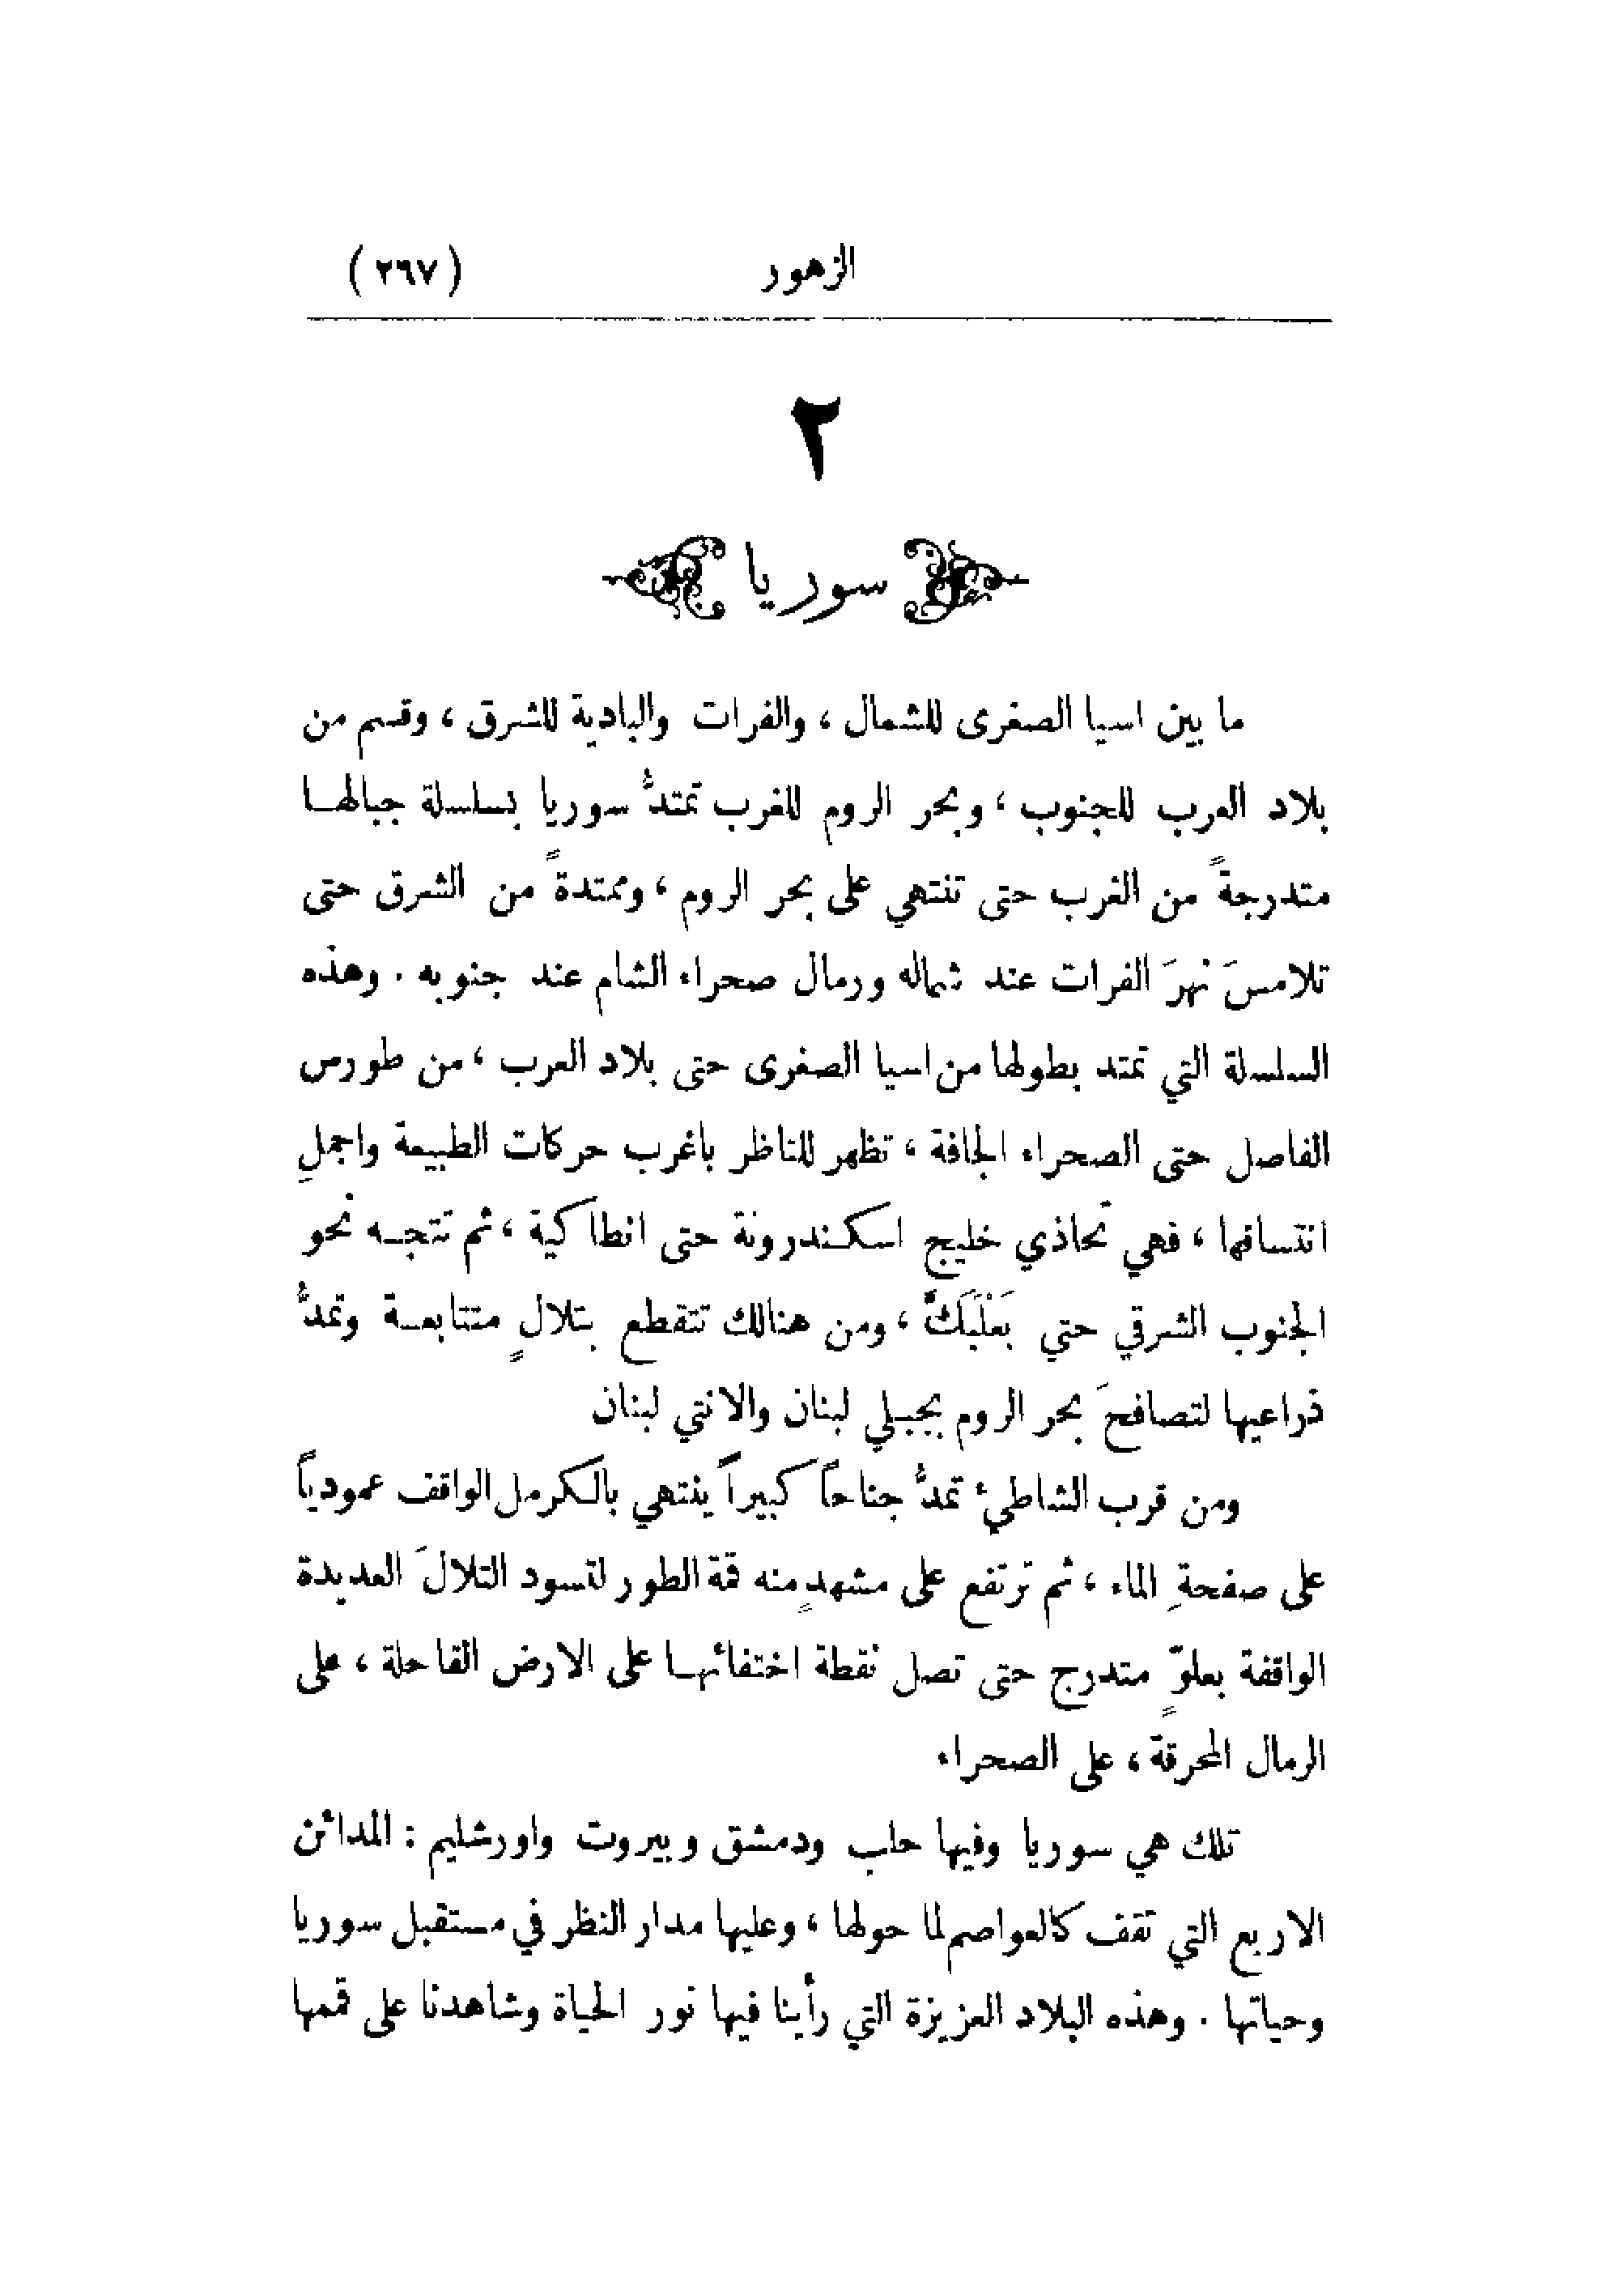 الزهور (٢٦٧)
٢
سوريا
ما بين اسيا الصغرى للشمال ، والفرات والبادية للشرق ، وقسم من
بلاد العرب للجنوب ، وبحر الروم للغرب تمتدُّ سوريا بسلسلة جبالها
متدرجةً من الغرب حتى تنتهي على بحر الروم ، وممتدةً من الشرق حتى
تلامسَ نهرَ الفرات عند شماله ورمال صحراء الشام عند جنوبه . وهذه
السلسلة التي تمتد بطولها من اسيا الصغرى حتى بلاد العرب ، من طورس
الفاصل حتى الصحراء الجافة ، تظهر للناظر باغرب حركات الطبيعة واجملِ
انتساقها ، فهي تحاذي خليج اسكندرونة حتى انطاكية ، ثم تتجه نحو
الجنوب الشرقي حتي بَعْلَبَكَّ ، ومن هنالك تتقطع بتلالٍ متتابعة وتمدُّ
ذراعيها لتصافحَ بحر الروم بجبلي لبنان والانتي لبنان
ومن قرب الشاطيء تمدُّ جناحاً كبيراً ينتهي بالكرمل الواقف عمودياً
على صفحةِ الماء ، ثم ترتفع على مشهدٍ منه قمة الطور لتسود التلالَ العديدة
الواقفة بعلوٍّ متدرج حتى تصل نقطة اختفائها على الارض القاحلة ، على
الرمال المحرقة ، على الصحراء
تلك هي سوريا وفيها حلب ودمشق وبيروت واورشليم : المدائن
الاربع التي تقف كالعواصم لما حولها ، وعليها مدار النظر في مستقبل سوريا
وحياتها . وهذه البلاد العزيزة التي رأينا فيها نور الحياة وشاهدنا على قممها